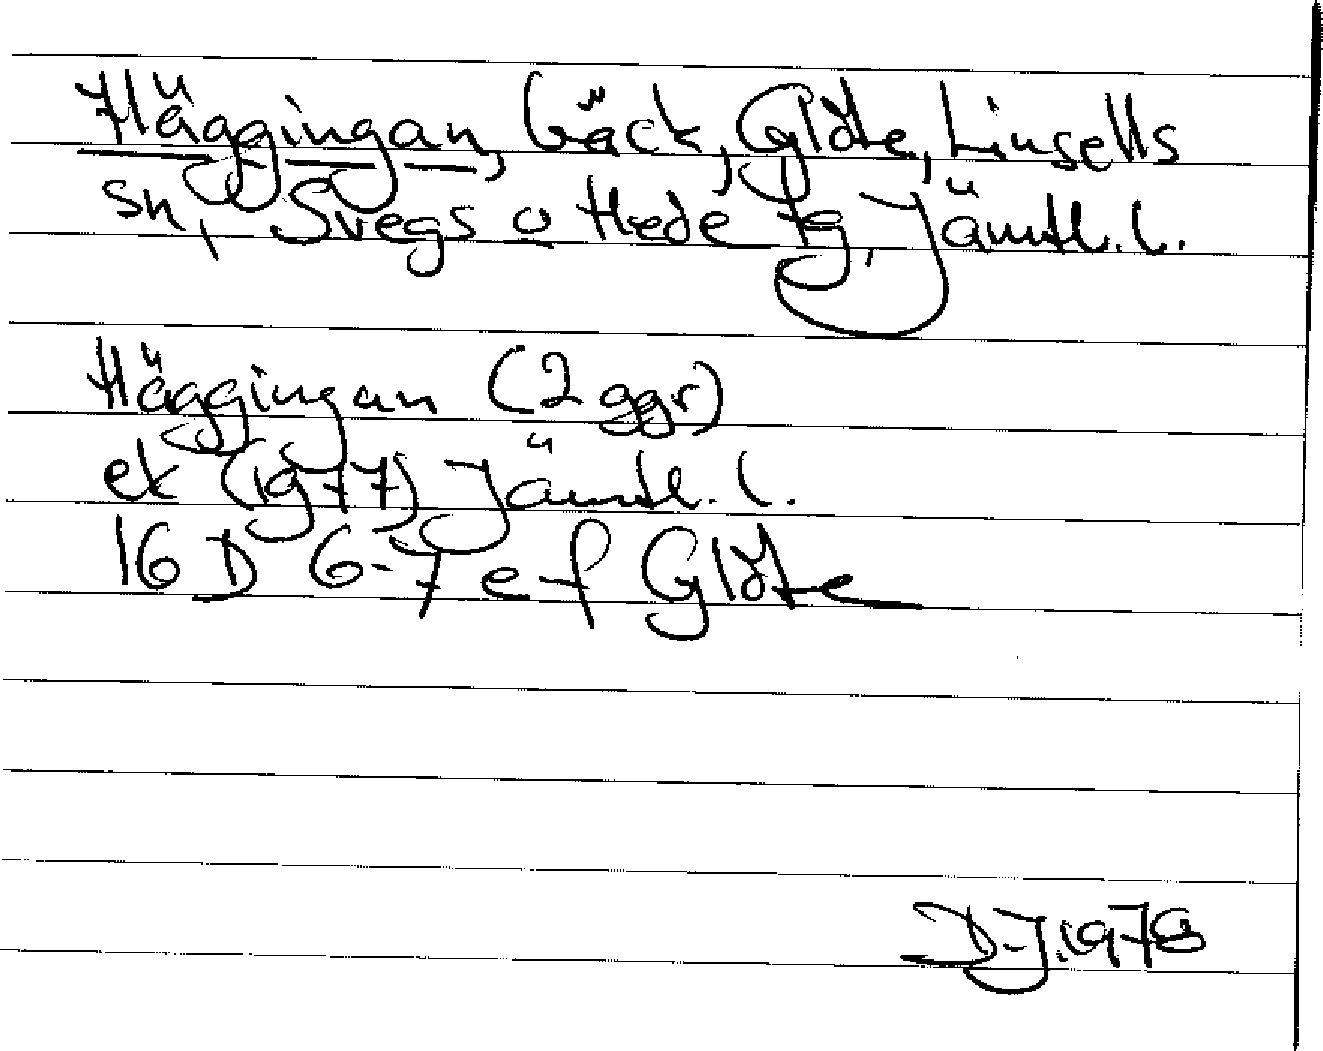 Häggingan, bäck, Glöte, Linsells
sn, Svegs o Hede tg, Jämtl. l.
Häggingan (2 ggr)
ek (1977) Jämtl. l.
16 D 6-7 e-f Glöte
D-J. 1978